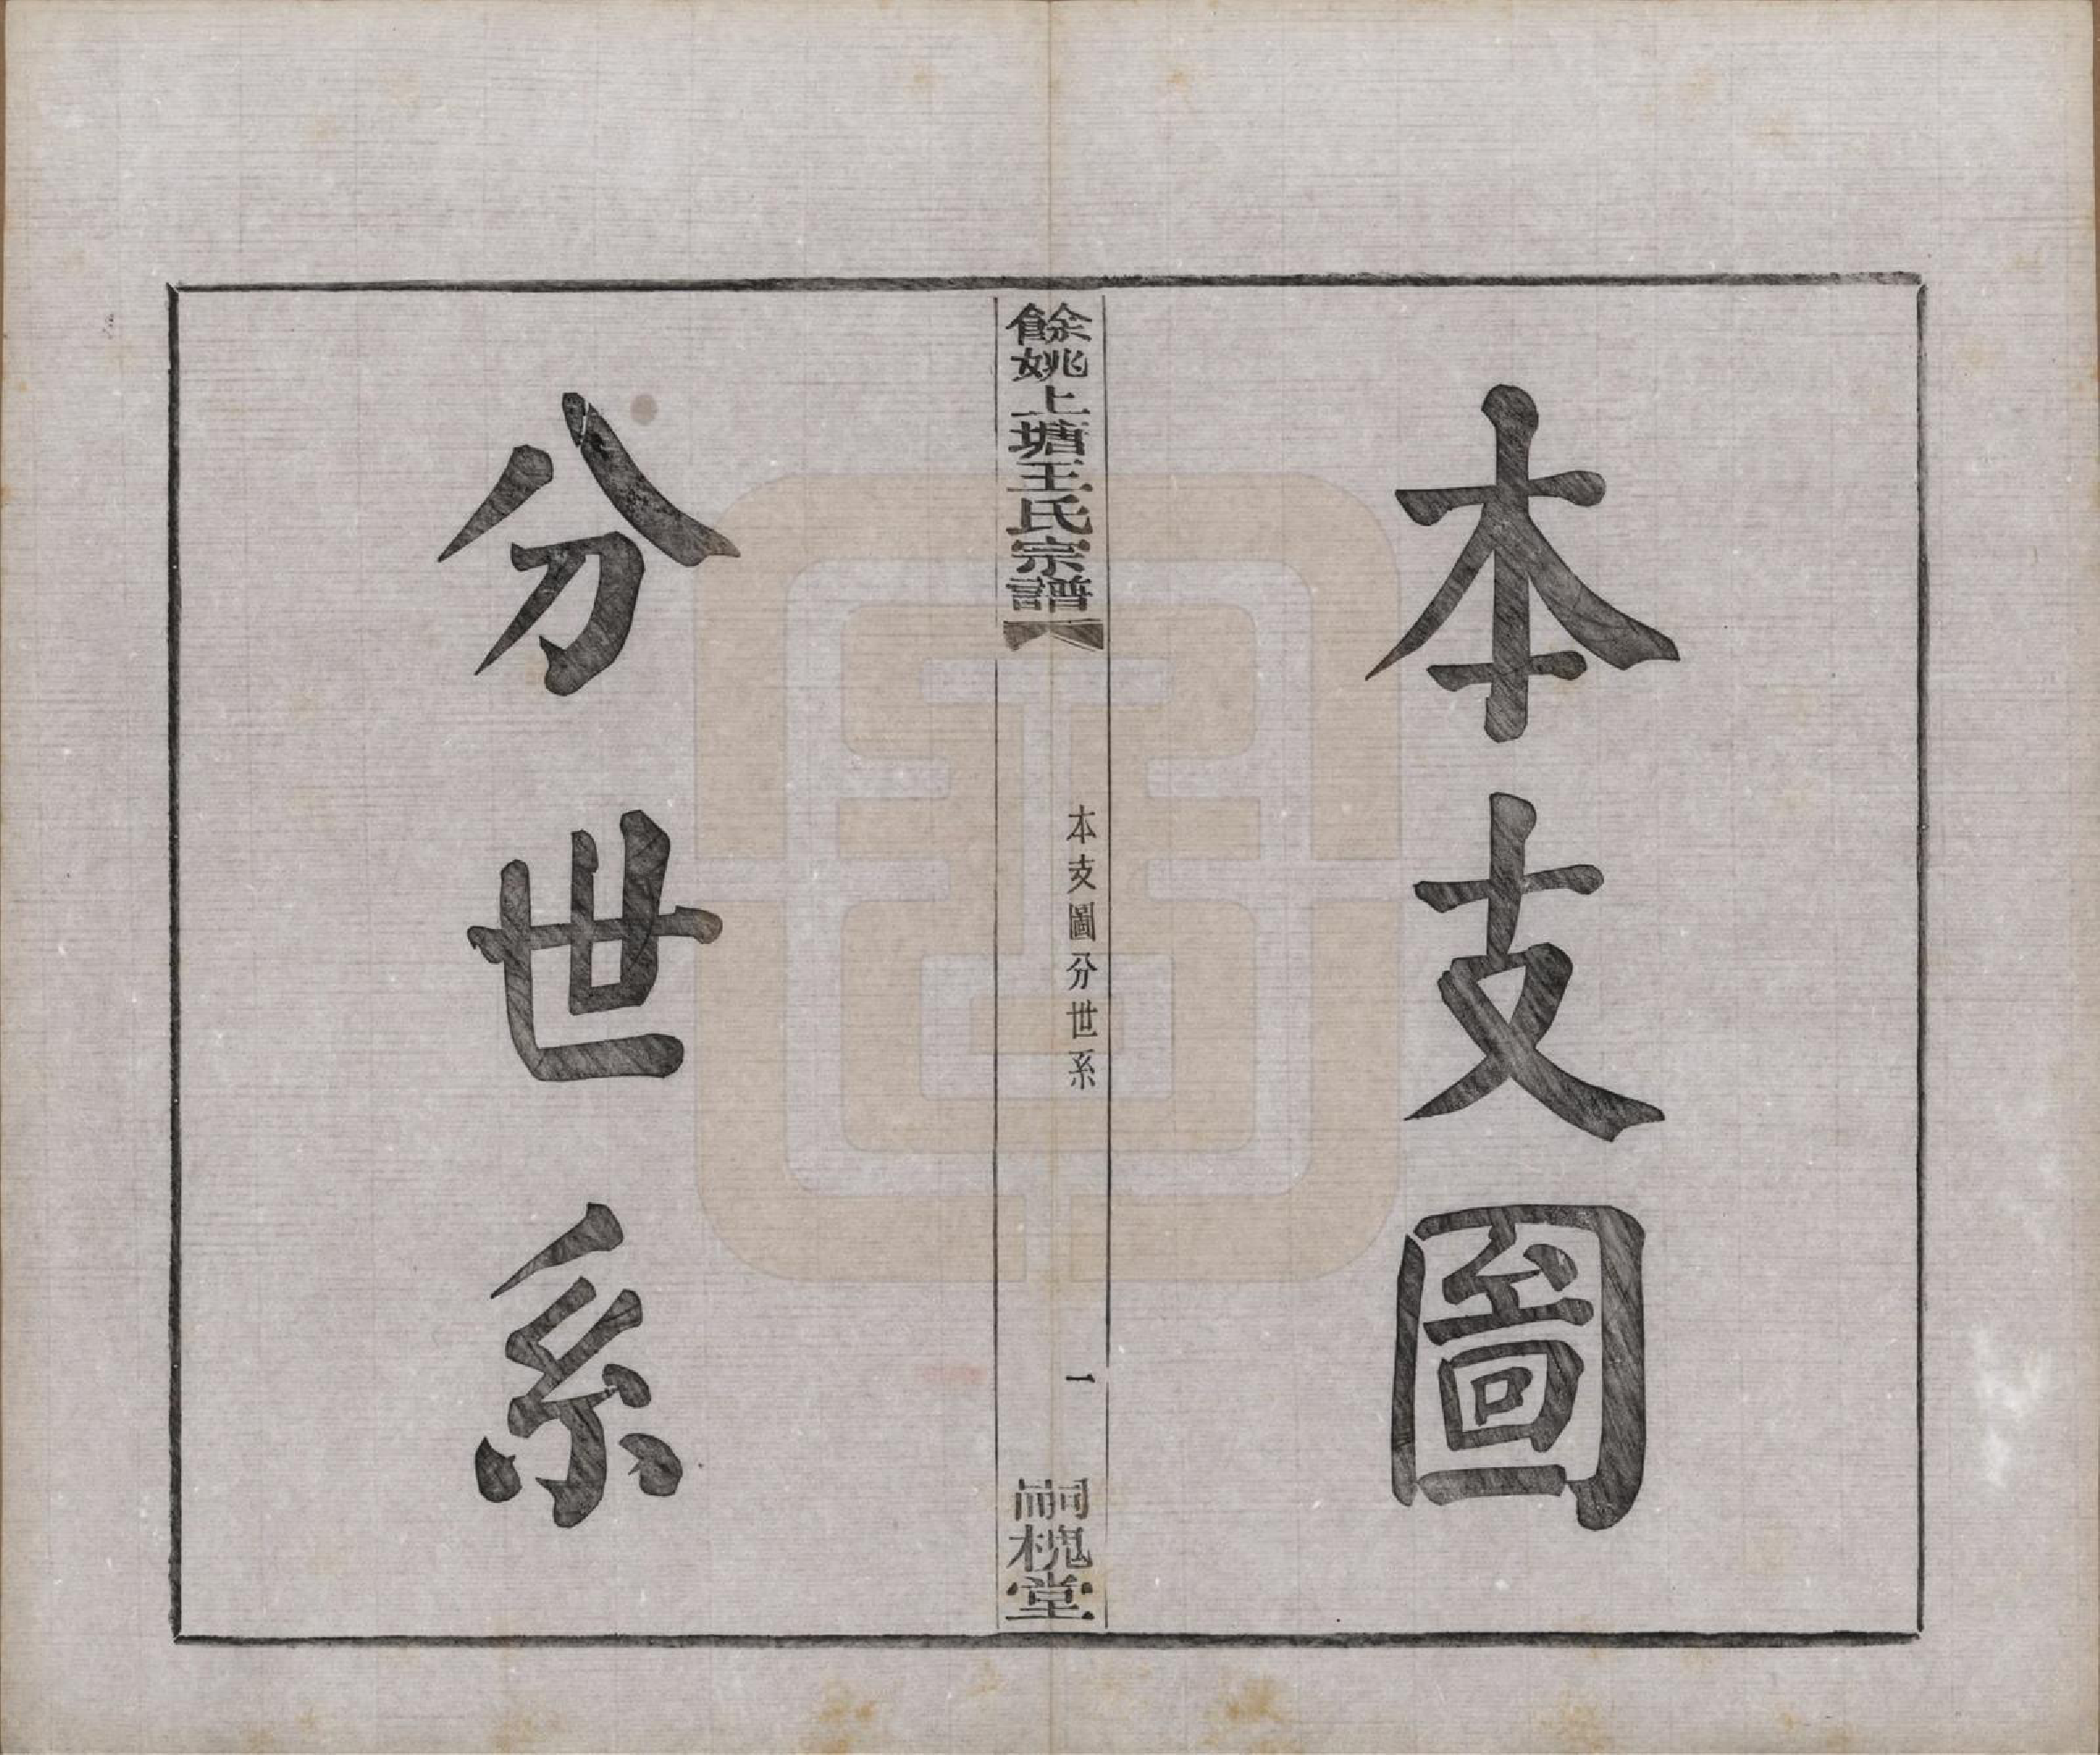 本支圖
餘姚上塘王氏宗譜
本支圖分世系
一
嗣槐堂
分世系